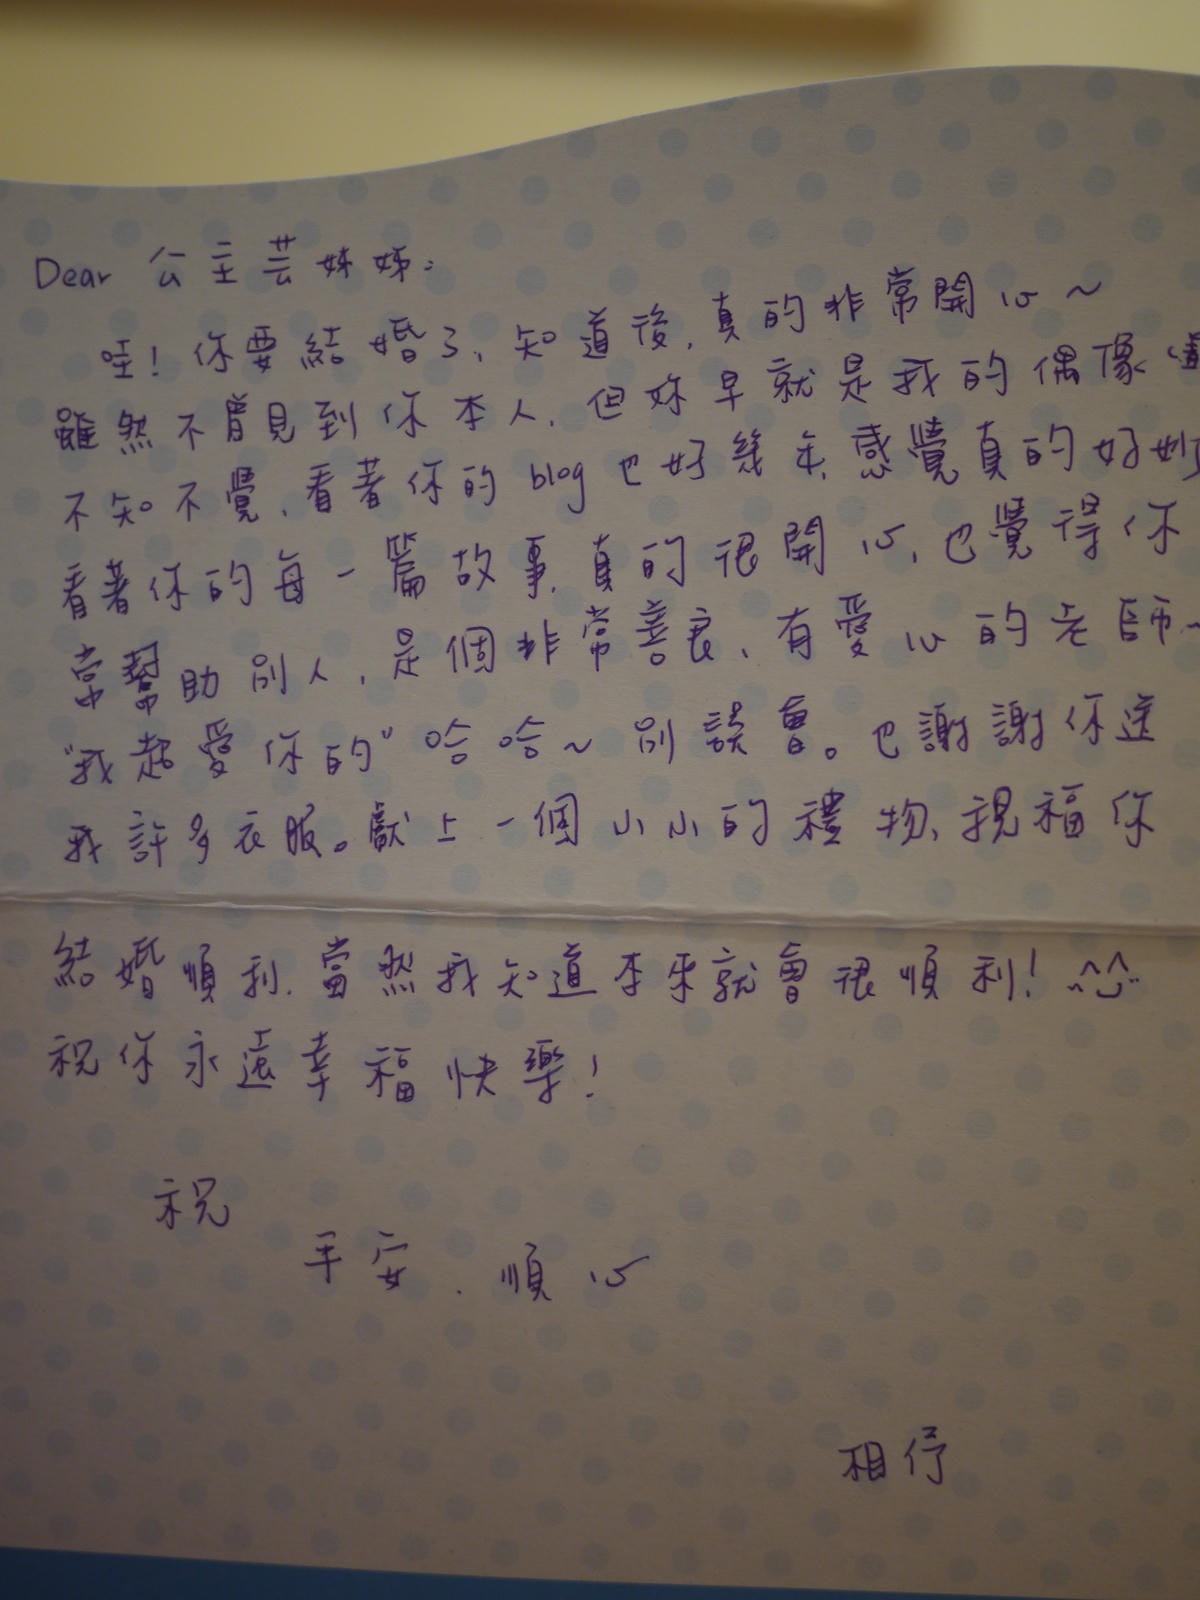 Dear 公主芸姊姊:
哇!你要結婚了、知道後,真的非常開心~
雖然不曾見到你本人,但妳早就是我的偶像
不知不覺、看著你的blog也好幾年,感覺真的好妙
看著你的每一篇故事,真的很開心,也覺得你
常幫助別人,是個非常善良、有愛心的老師~
"我超愛你的"哈哈~別誤會。也謝謝你送
我許多衣服。獻上一個小小的禮物、祝福你
結婚順利,當然我知道本來就會很順利!^^
祝你永遠幸福快樂!
祝
平安、順心
相伃